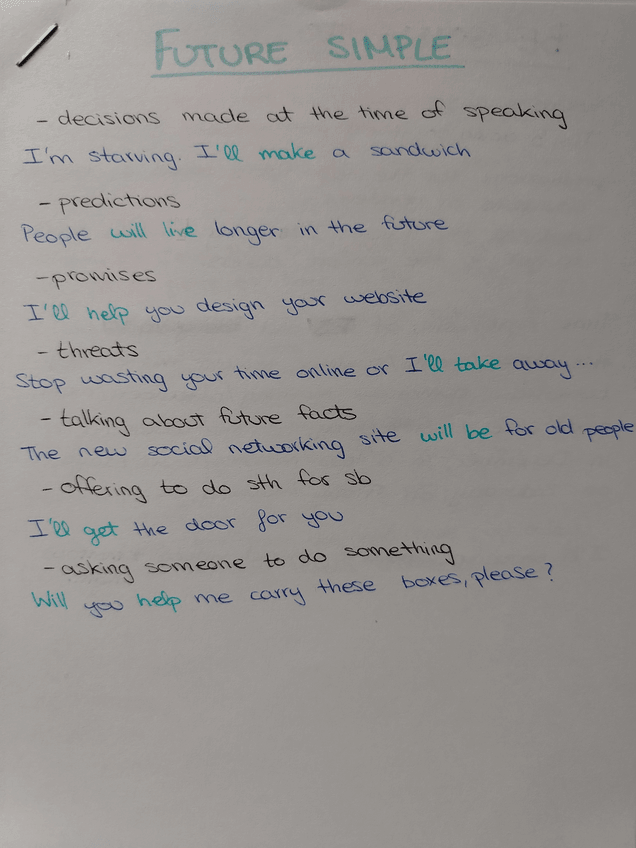 FUTURE SIMPLE
- decisions made at the time of speaking
I'm starving. I'll make a sandwich
- predictions
People will live longer in the future
- promises
I'll help you design your website
- threats
Stop wasting your time online or I'll take away...
- talking about future facts
The new social networking site will be for old people
- offering to do sth for sb
I'll get the door for you
- asking someone to do something
Will you help me carry these boxes, please?